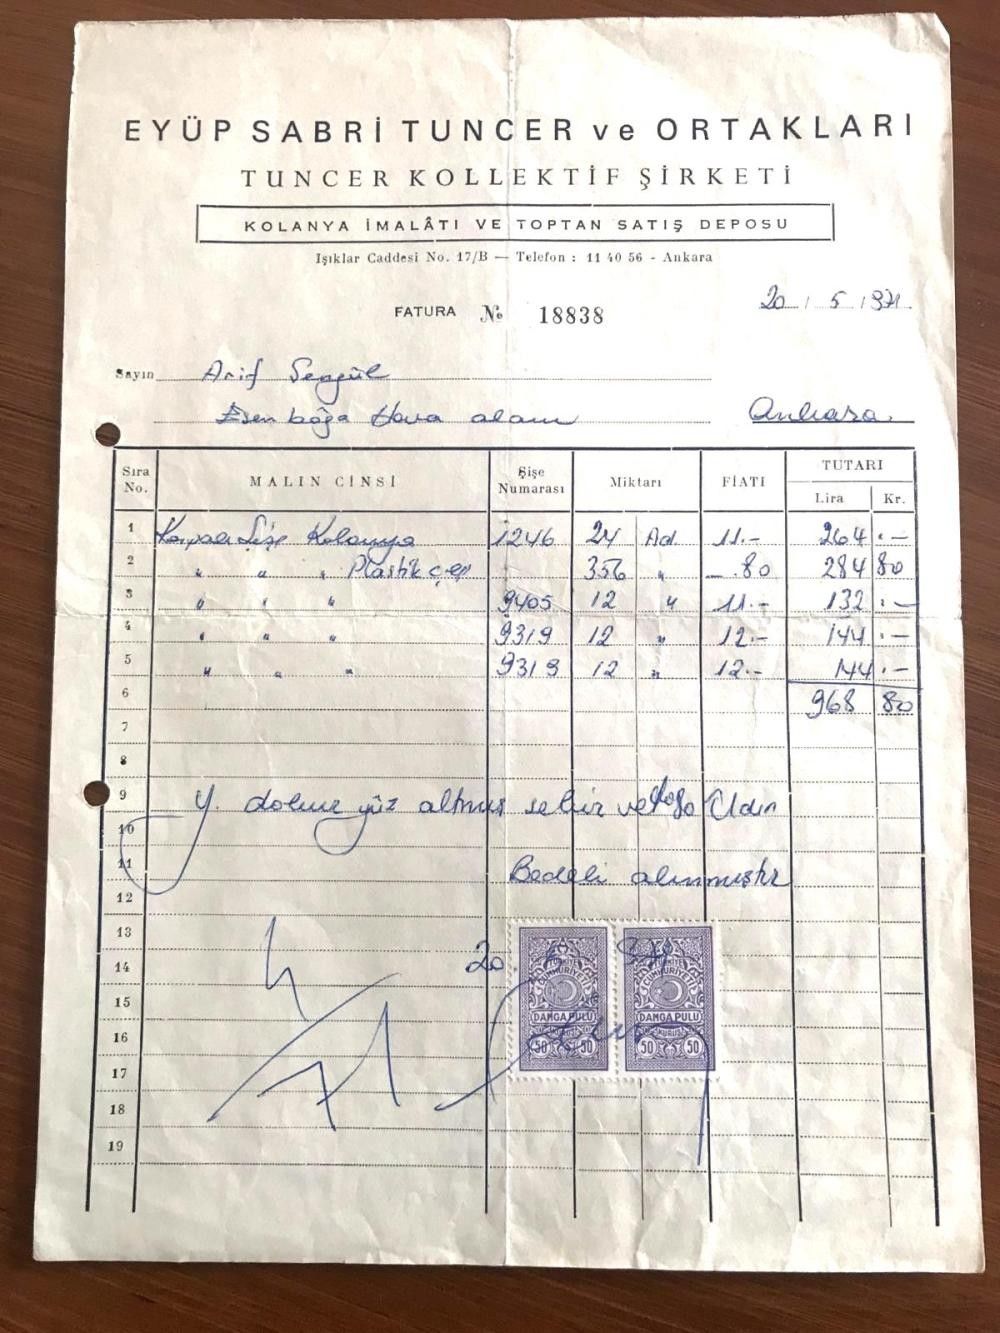 EYÜP SABRİ TUNCER ve ORTAKLARI
TUNCER KOLLEKTİF ŞİRKETİ
KOLANYA İMALÂTI VE TOPTAN SATIŞ DEPOSU
Işıklar Caddesi No. 17/B — Telefon : 11 40 56 - Ankara
FATURA № 18838
20 / 5 / 971
Sayın Arif Şengül
Esenboğa Hava alanı Ankara
Sıra No. MALIN CİNSİ Şişe Numarası Miktarı FİATI TUTARI
Lira Kr.
1 Şişe Kolonya 1246 24 Ad 11.- 264 .-
2 " " " Plastik 356 " -.80 284 80
3 " " " 9405 12 " 11.- 132 .-
4 " " " 9319 12 " 12.- 144 .-
5 " " " 9319 12 " 12.- 144 .-
6 968 80
7
8
9 Y. yüz altmış
10
11 Bedeli alınmıştır
12
13
14 20
15
16
17
18
19
TÜRKİYE CUMHURİYETİ
DAMGA PULU
50 50
TÜRKİYE CUMHURİYETİ
DAMGA PULU
50 50